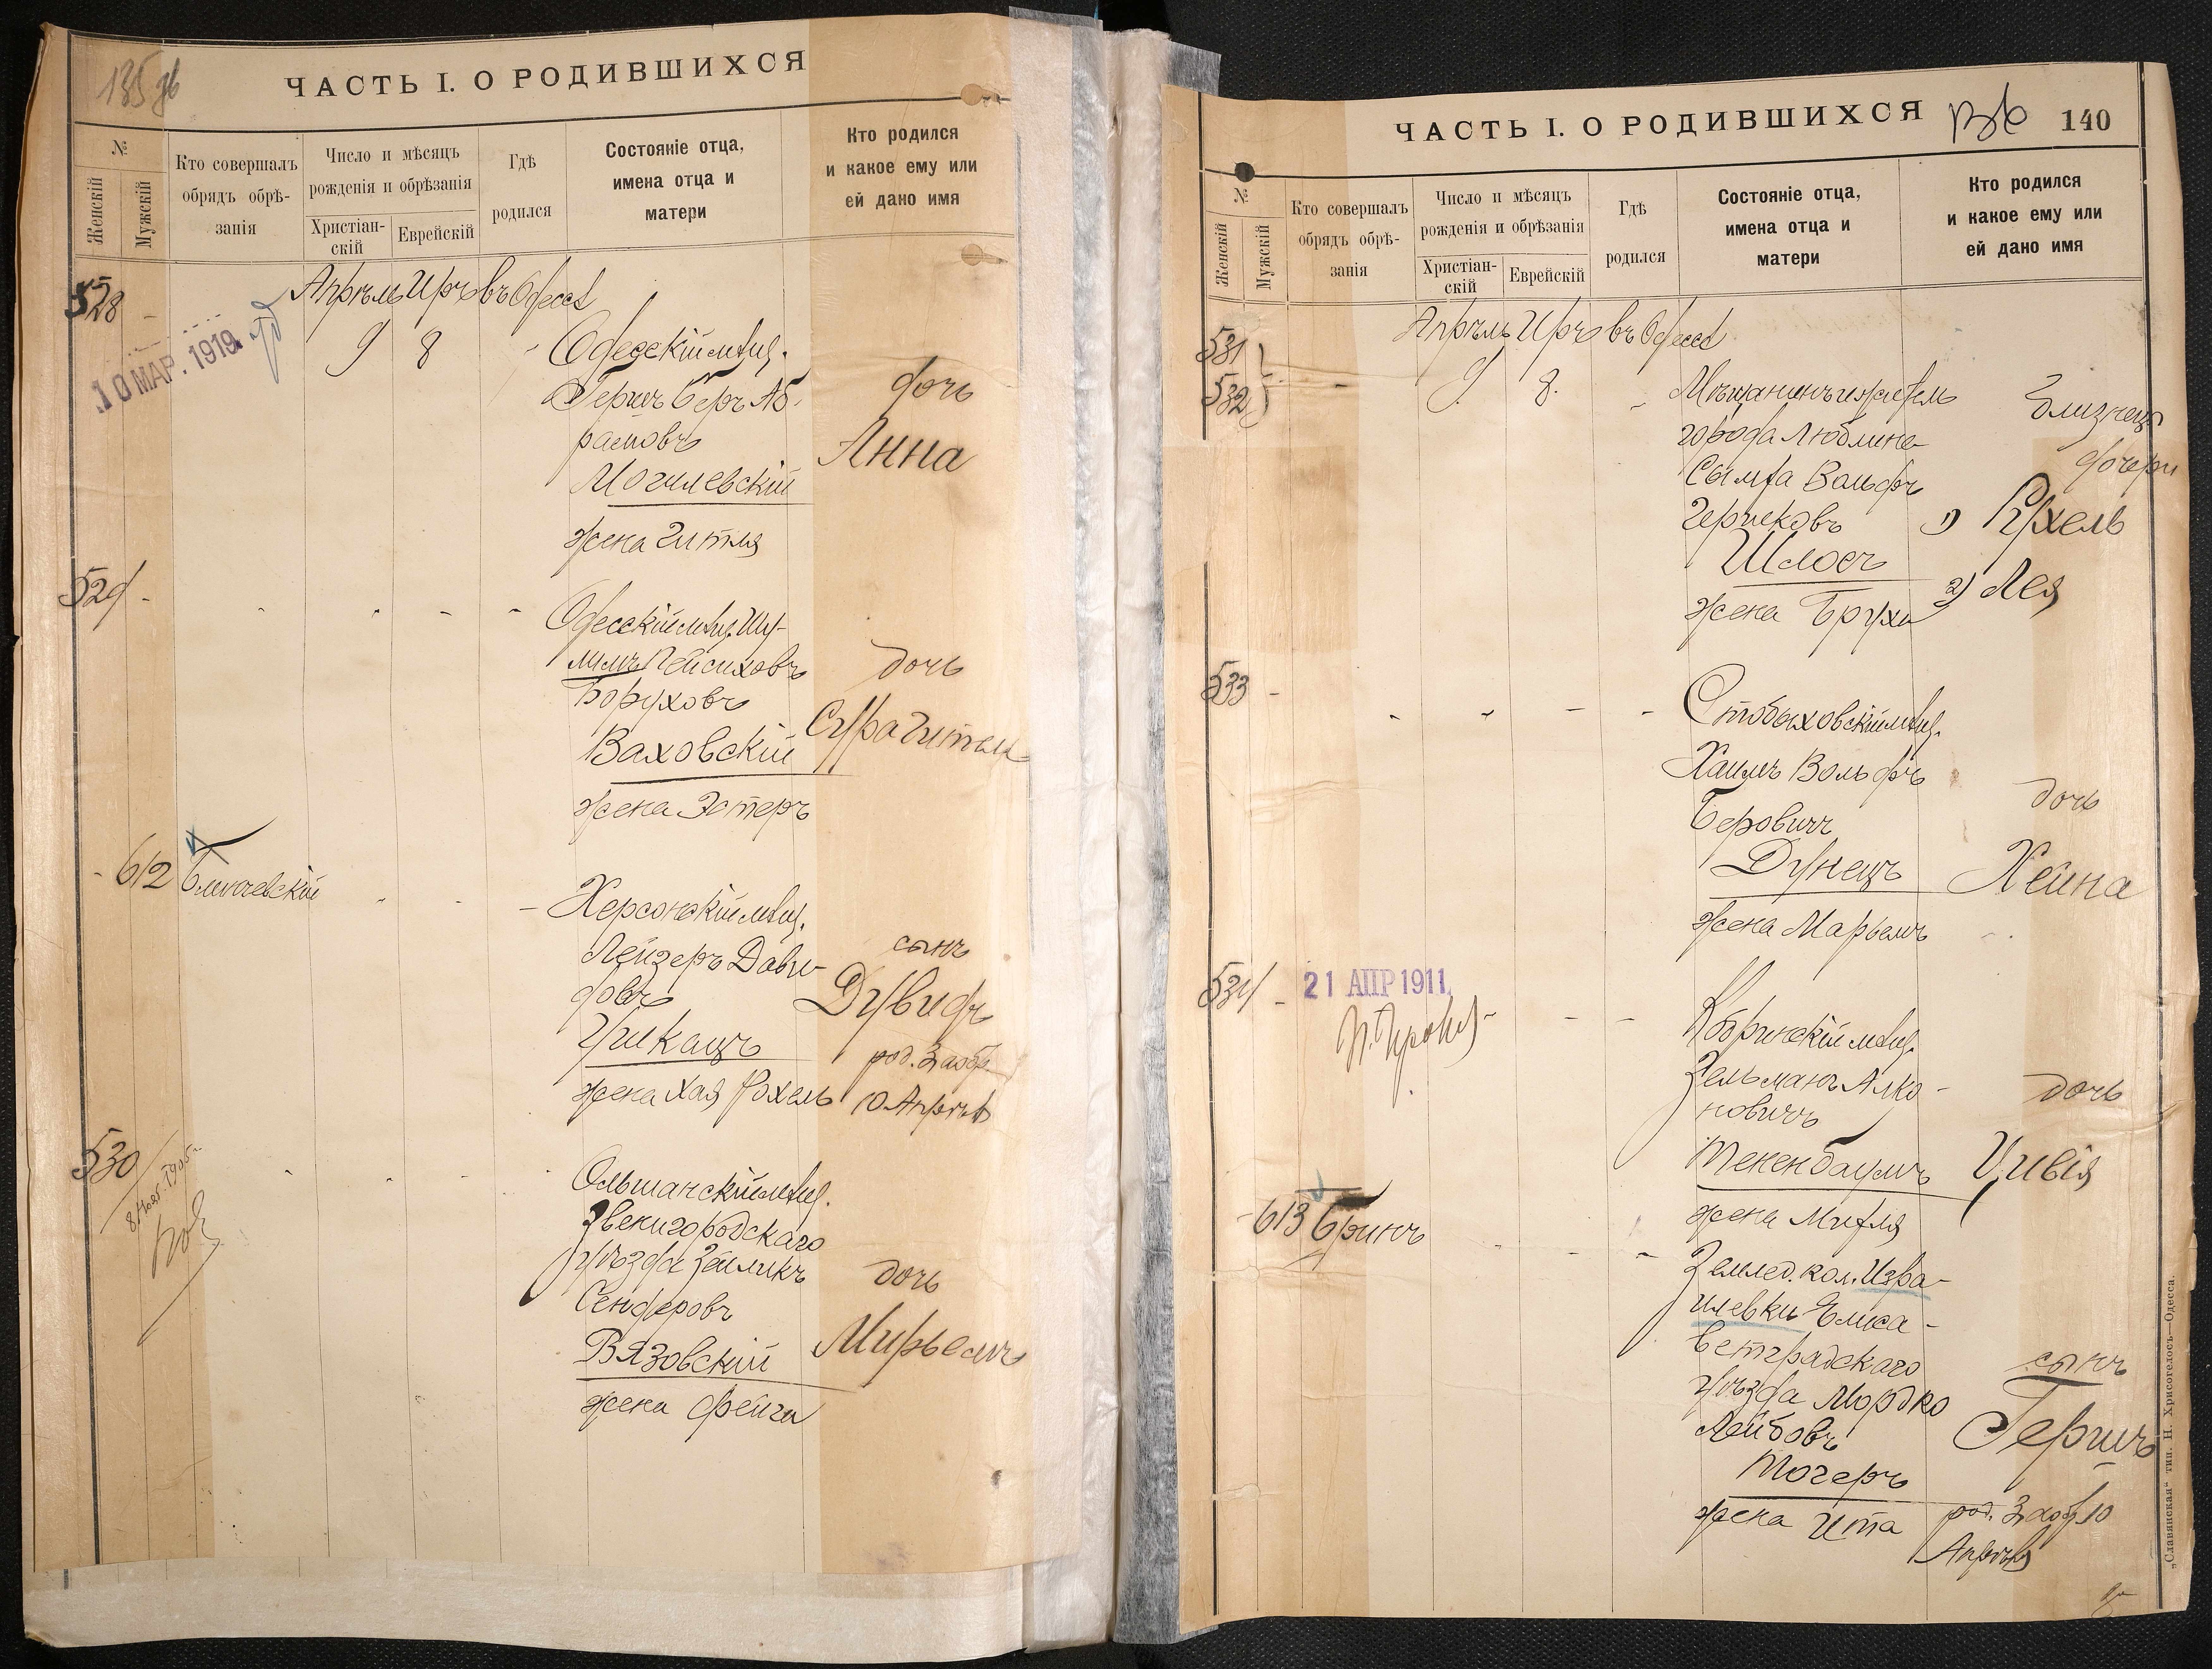 ЧАСТЬ I. О РОДИВШИХСЯ
№
Женскій
Мужскій
Кто совершалъ
обрядъ обрѣ-
занія
Число и мѣсяцъ
рожденія и обрѣзанія
Христіан-
скій
Еврейскій
Гдѣ
родился
Состояніе отца,
имена отца и
матери
Кто родился
и какое ему или
ей дано имя
Апрѣль Иръ въ Одессѣ
528 -
10 МАР. 1919
9 8
Одесскій мѣщ.
Гершъ Беръ Аб-
рамовъ
Могилевскій
жена Гитля
дочь
Анна
529 -
Одесскій мѣщ. Шу-
лимъ Пейсиховъ
Боруховъ
Ваховскій
жена Эстеръ
дочь
Сура Гитля
- 612
Херсонскій мѣщ.
Лейзеръ Дави-
довъ
жена Хая Рохель
сынъ
Дувидъ
род. З аобр.
10 Апрѣля
530
8 Нояб. 1905
Ольшанскій мѣщ.
Звенигородскаго
уѣзда Зейликъ
Сендеровъ
Вязовскій
жена Фейга
дочь
Мирьемъ
ЧАСТЬ I. О РОДИВШИХСЯ
140
№
Женскій
Мужскій
Кто совершалъ
обрядъ обрѣ-
занія
Число и мѣсяцъ
рожденія и обрѣзанія
Христіан-
скій
Еврейскій
Гдѣ
родился
Состояніе отца,
имена отца и
матери
Кто родился
и какое ему или
ей дано имя
Апрѣль Иръ въ Одессѣ
531
532
9 8.
города Люблина
Вольфъ
Гершковъ
Шлосъ
жена Бруха
близнецы
дочери
1) Рухель
2) Лея
533 -
Стобыховскій мѣщ.
Хаимъ Вольфъ
Беровичъ
Дунецъ
жена Марьемъ
дочь
Хейна
534 -
21 АПР 1911
Кобринскій мѣщ.
Зельманъ Алко-
новичъ
Тененбаумъ
жена
дочь
Цивія
- 613 Бринъ
Землед. кол. Изра-
илевки Елиса-
ветградскаго
уѣзда Мордко
Лейбовъ
Точеръ
жена Ита
сынъ
Гершъ
род. З аобр 10
Апрѣля
„Славянская“ тип. Н. Хрисогелосъ—Одесса.